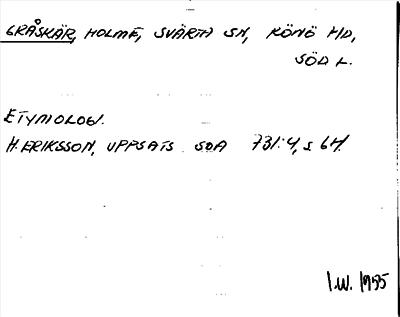 GRÅSKÄR, HOLME, SVÄRTA SN, RÖNÖ HD,
SÖD L.
ETYMOLOGI.
H. ERIKSSON, UPPSATS SOA 731:4, s 64.
I.W. 1955